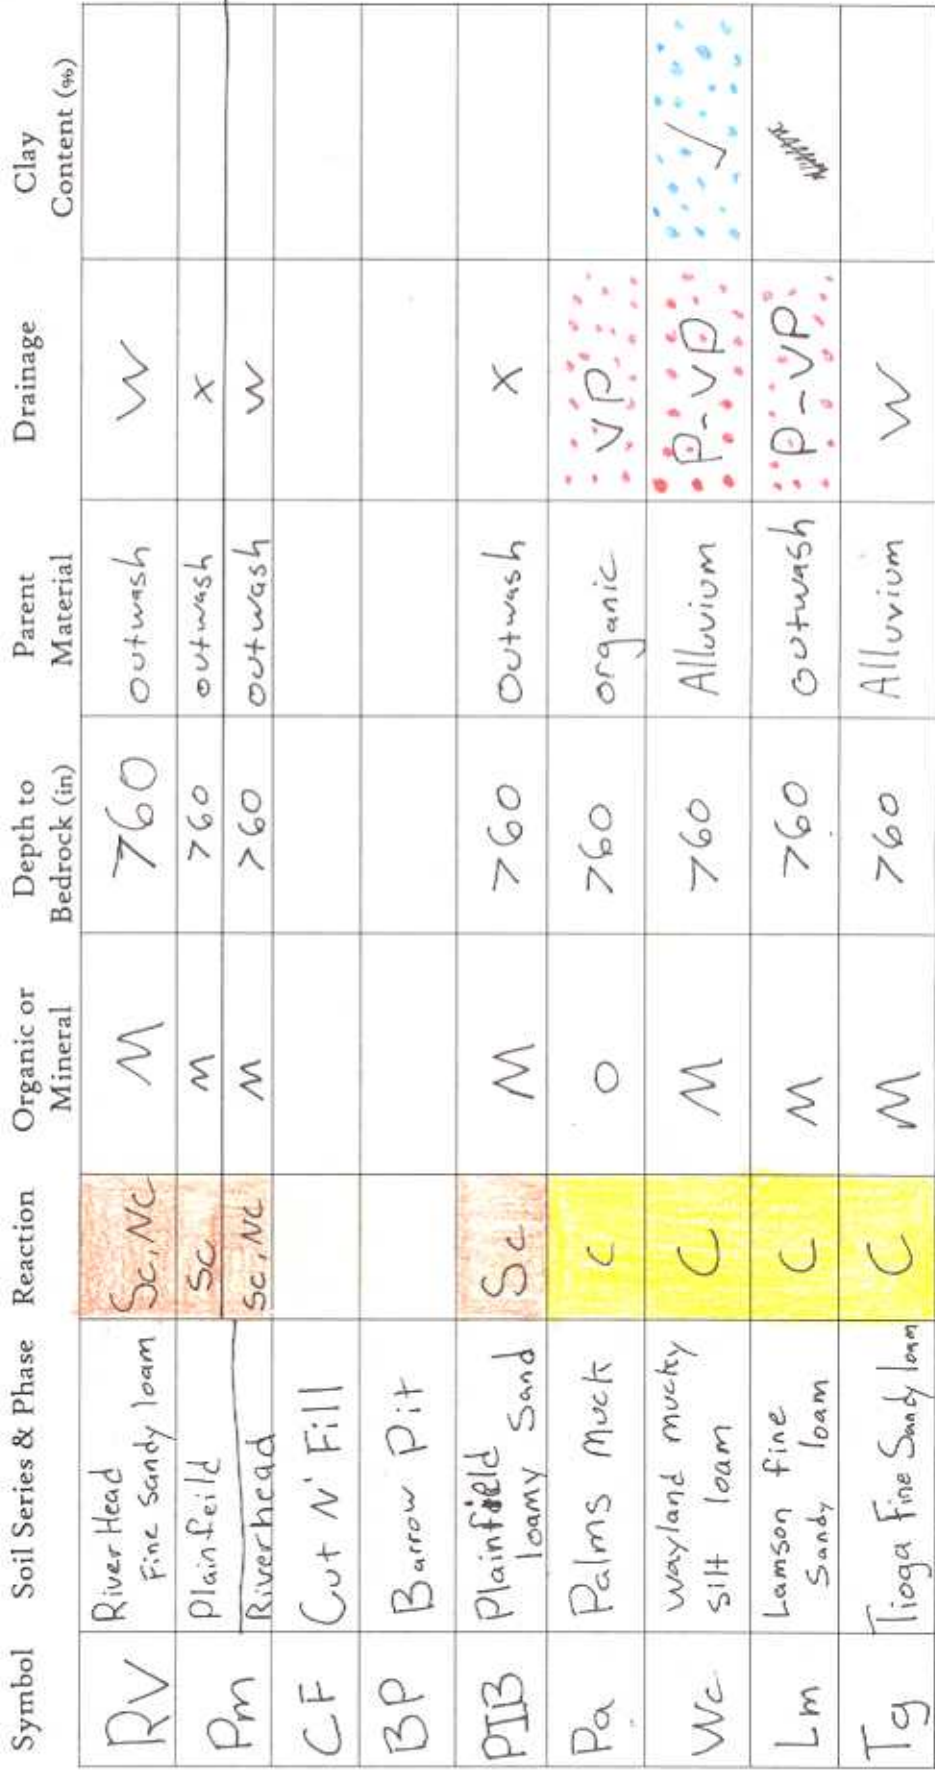 Symbol Soil Series & Phase Reaction Organic or Mineral Depth to Bedrock (in) Parent Material Drainage Clay Content (%)
RV River Head Fine sandy loam Sc, NC M >60 outwash W
Pm Plainfeild Sc M >60 outwash X
Riverhead Sc, NC M >60 outwash W
CF Cut N' Fill
BP Barrow Pit
PIB Plainfield loamy Sand Sc M >60 Outwash X
Pa Palms Muck C O >60 organic VP
Wc Wayland mucky silt loam C M >60 Alluvium P-VP ✓
Lm Lamson fine Sandy loam C M >60 outwash P-VP
Tg Tioga Fine Sandy loam C M >60 Alluvium W